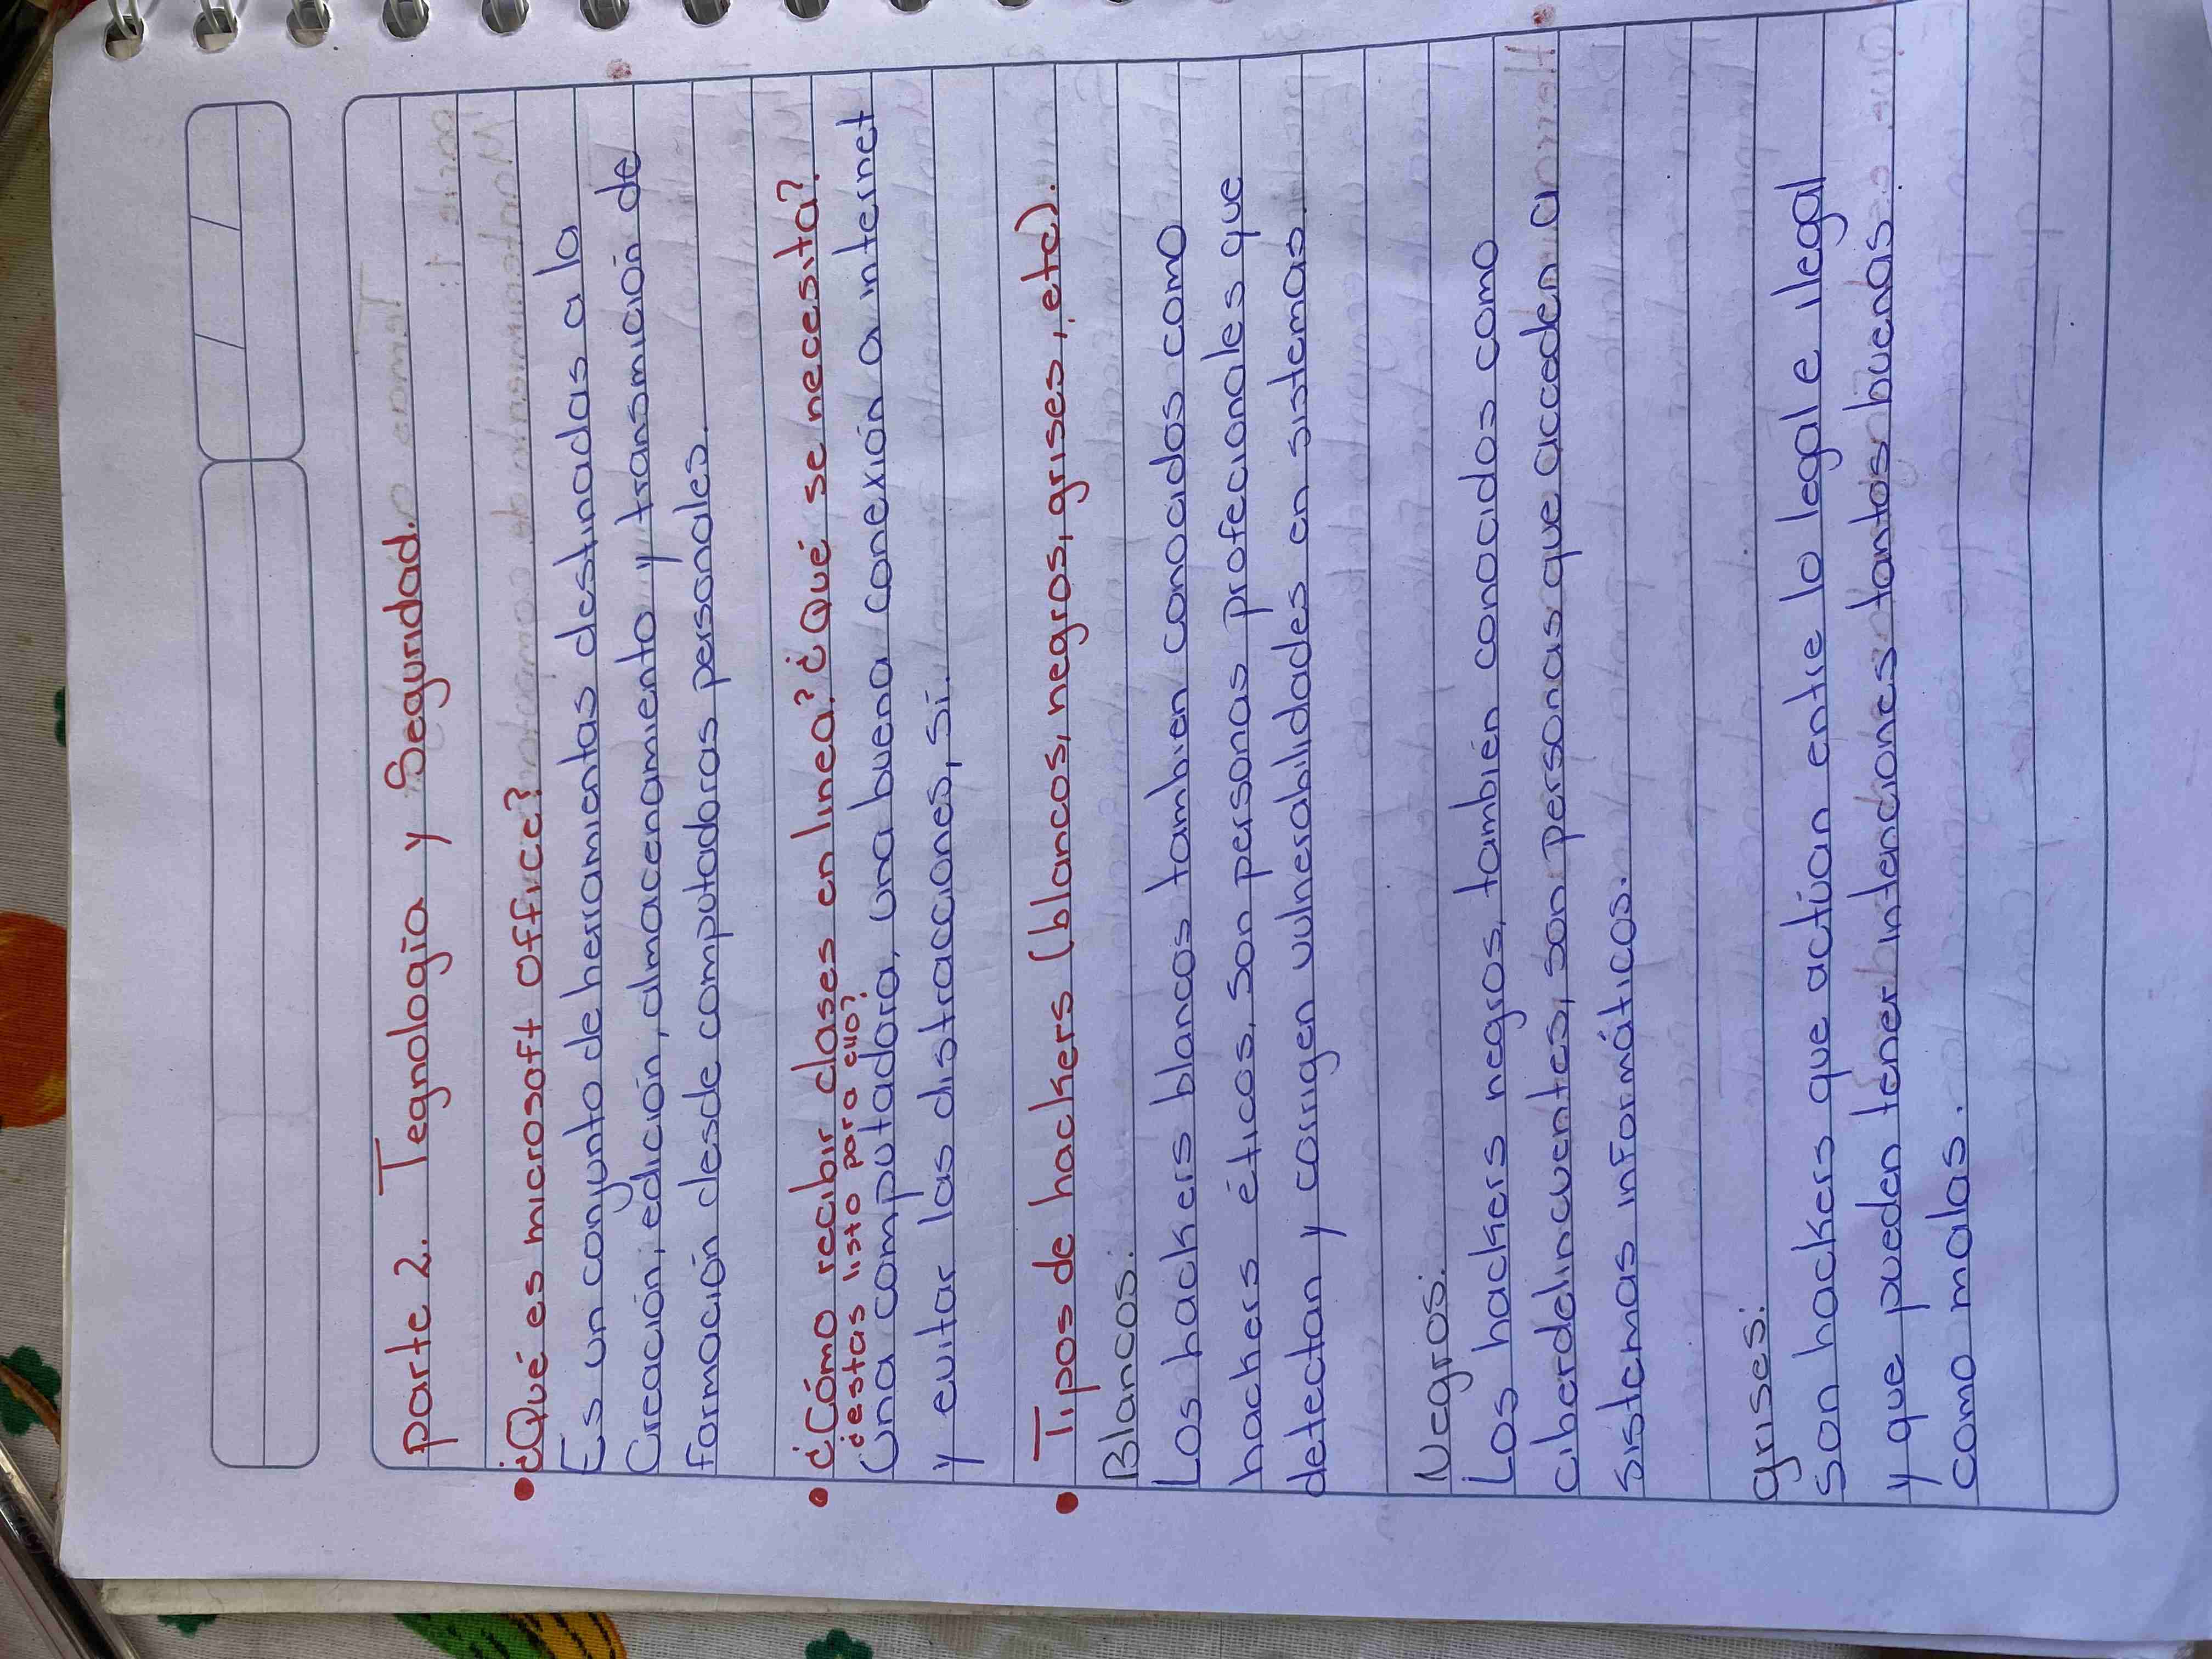 parte 2. Tegnologia y Seguridad.
• ¿Qué es microsoft office?
Es un conjunto de herramientas destinadas a la
Creación, edición, almacenamiento y transmición de
formación desde computadoras personales.
• ¿Cómo recibir clases en linea? ¿Qué se necesita?
¿estas listo para ello?
Una computadora, una buena conexión a internet
y evitar las distracciones, si.
• Tipos de hackers (blancos, negros, grises, etc).
Blancos:
Los hackers blancos tambien conocidos como
hackers éticos, son personas profecionales que
detectan y corrigen vulnerabilidades en sistemas.
Negros:
Los hackers negros, también conocidos como
ciberdelincuentes, son personas que acceden a
sistemas informáticos.
grises:
son hackers que actúan entre lo legal e ilegal
y que pueden tener intenciones tantos buenas
como malas.